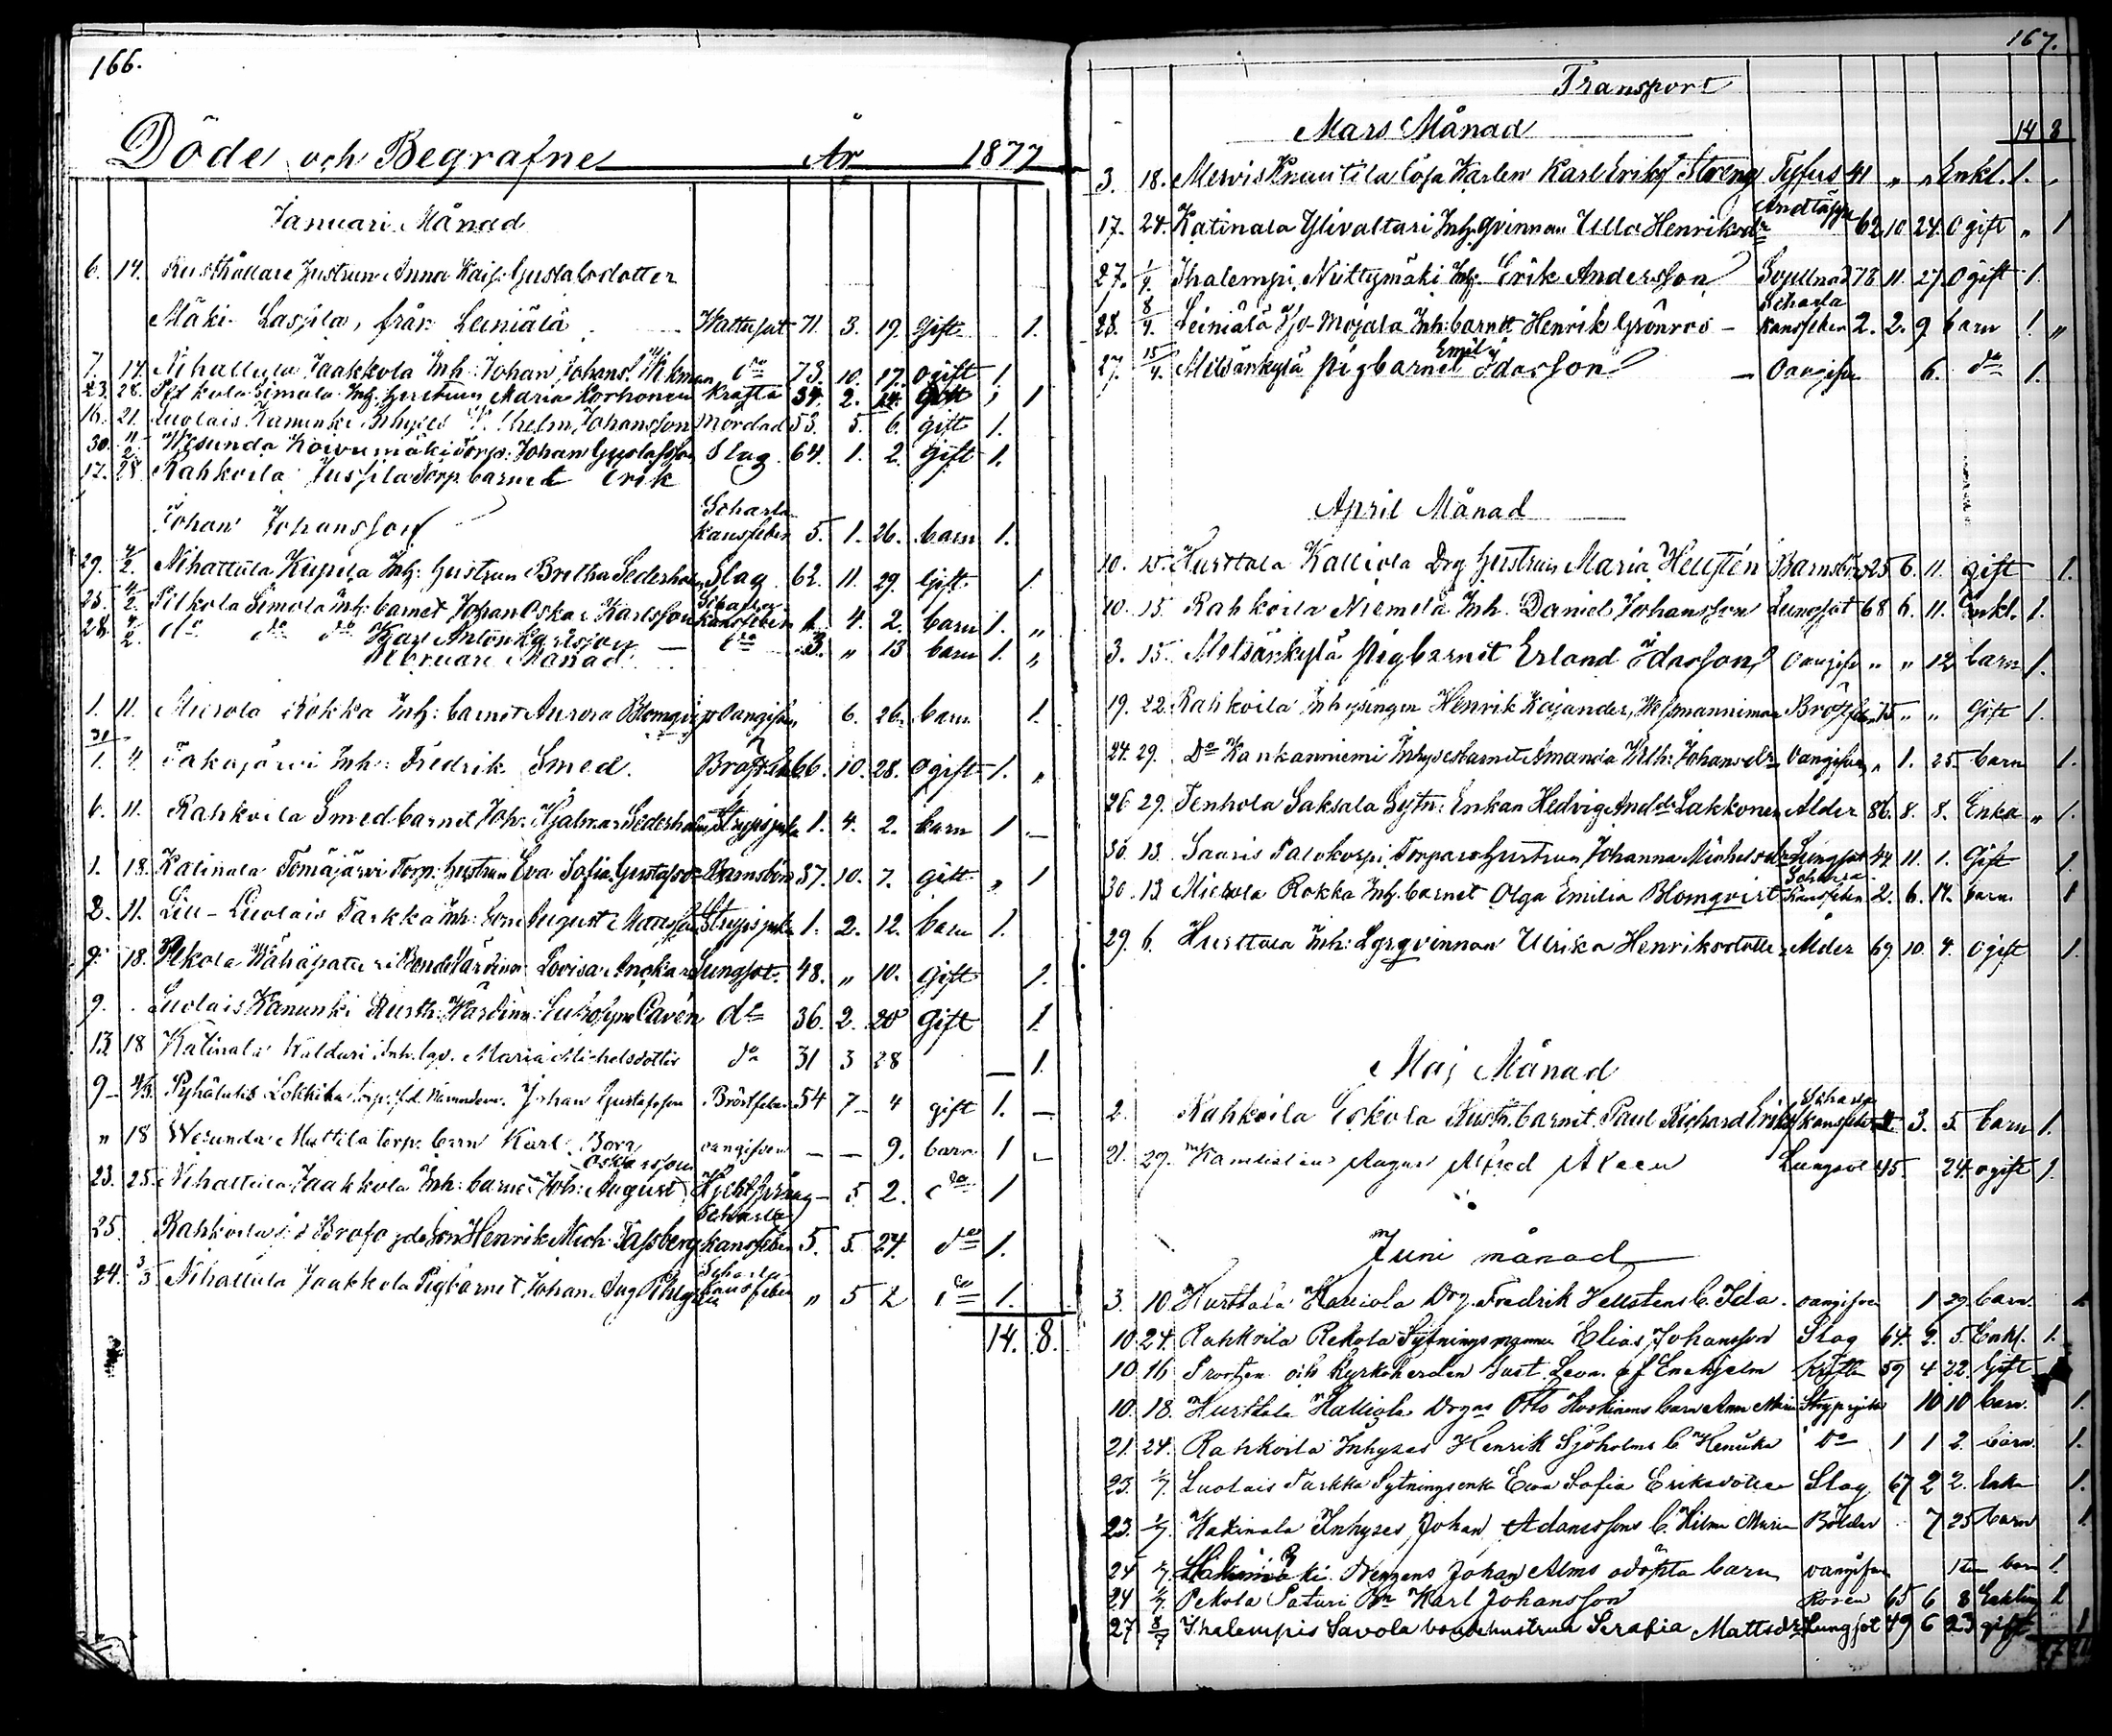 166.
Döde och Begrafne År 1877
Januari Månad
6. 14. Rusthållare hustrun Anna Kajs: Gustafsdotter
Mäki Laspila, från Leiniälä Wattusot 71. 3. 19. gift 1.
7. 14. Nihattula Jaakkola Inh: Johan Johans. Wikman do 73. 10. 17. ogift 1.
23. 28. Simola Inh. hustrun Maria Korhonen Kräfta 34. 2. 24. gift 1
16. 21. Luolais Kanunki Inhyses Johansson Mördad 53. 5. 6. gift 1.
30. 4/2. Wesunda Koivumäki Torp: Johan Gustafsson Slag 64. 1. 2. gift 1.
17. 28. Rahkoila Jussila Torp. barnet Erik
Johan Johansson Scharlakansfeber 5. 1. 26. barn 1.
29. 4/2. Nihattula Inh: hustrun Bretha Sederholm Slag 62. 11. 29. Gift 1.
25. 4/2. Pilkola Simola Inh: barnet Johan Oskar Karlsson Scharlakansfeber 1. 4. 2. barn 1. „
28. 4/2. do do do Karl Anton Karlsson — do 3. „ 13 barn 1. „
Februari Månad
1. 11. Mierola Rokka Inh: barnet Aurora Blomqvist Oangifven 6. 26. barn 1.
31/1. 4. Takajärvi Inh: Fredrik Smed. 66. 10. 28. Ogift 1. „
6. 11. Rahkoila Smed barnet Joh: Hjalmar Sederholm Strypsjuka 1. 4. 2. barn 1 —
1. 18. Katinala Tomäjärvi Torp: hustrun Eva Sofia Gustafsdr Barnsbörd 37. 10. 7. gift „ 1
2. 11. Luolais Tarkka Inh: Sone August Strypsjuka 1. 2. 12. barn 1.
9. 18. Pekola Wähäpaturi Lovisa Lungsot. 48. „ 10. Gift 1.
9. Luolais Kanunki Rusth: Wärdinn: Caven do 36. 2. 20 Gift 1.
13. 18 Katinala Inh. Maria Michelsdotter do 31 3 28 — 1.
9 — 4/3. Pyhälutis torp: Johan Gustafsson Bröstfeber 54 7 4 gift 1. —
„ 18 Wesunda Muttila torp: barn Karl oangifven — — 9. barn 1 —
Oskarsson
23. 25. Nihattula Jaakkola Inh: barnet Joh: August — 5 2. do 1
25. Rahkoila Henrik Mich: Tasberg Scharlakansfeber 5. 5. 24. do 1.
24. 3/3 Nihattula Jaakkola Pigbarnet Johan Aug. Scharlakansfeber „ 5 2 do 1.
14. 8.
167.
Transport
Mars Månad 14 8
3. 18. Mervis Knuutila Karlen Karl Eriks Streng Tyfus 41 „ „ Enkl. 1.
17. 24. Katinala Ylivaltari Inh. qvinnan Ulla Henriksdr Andtäppa 62 10 24 Ogift „ 1
27. 1/4. Ihalempi Niittymäki Inh. Erik Andersson Svullnad 73 11 27. Ogift 1.
28. 8/4. Leiniälä Inh: barnet Henrik Grönroos — Scharlakansfeber 2. 2. 9 barn 1. „
27. 15/4. Metsänkylä Pigbarnet Emil Idasson — Oangifven 6. do 1.
April Månad
10. 15. Hurttala Kalliola Drg hustrun Maria Hellsten Barnsbörd 25 6. 11. gift 1.
10. 15. Rahkoila Niemelä Inh. Daniel Johansson Lungsot 68 6. 11. Enkl. 1.
3. 15. Metsänkylä Pigbarnet Erland Idasson Oangifven „ „ 12 barn 1.
19. 22. Rahkoila Inhysingen Henrik Kajander, „ „ Gift 1.
24. 29. Do Kankanniemi Inhysesbarnet Amanda Wilh: Johansdr Oangifven „ 1. 25. barn 1.
26 29. Tenhola Saksala Sytn: Enkan Hedvig Andsdr Lakkonen Ålder 86. 8. 8. Enka „ 1.
30. 13. Saaris Palokorpi Torpare hustrun Johanna Michelsdr Lungsot 44 11. 1. Gift 1.
30. 13. Mierola Rokka Inh. barnet Olga Emilia Blomqvist Scharlakansfeber 2. 6. 17. barn 1
29. 6. Hurttala Inh: Lösqvinnan Ulrika Henriksdotter Ålder 69. 10. 4. Ogift 1.
Maj Månad
2. Rahkoila Eskola Rusth. barnet Paul Richard Scharlakansfeber 3. 5. barn 1.
21. 27. August Alfred Lungsot 45. 24. ogift 1.
Juni månad
3. 10. Hurttala Kalliola Drg. Fredrik Hellstens b. Ida. oangifven 1 29. barn.
10 24. Rahkoila Rekola Sytningsmannen Elias Johansson Slag 64. 2. 5. Enkl. 1.
10 16 Prosten och Kyrkoherden Gust. Leon. af Enehjelm Kräfta 59 4 22. Gift
10. 18. Hurttala Kalliola Drgns Otto barn Anna Maria Strypsjuka 10 10 barn. 1.
21. 24. Rahkoila Inhyses Henrik Sjöholms b. Henrika do 1 1 2. barn. 1.
23. 1/7. Luolais Tarkka Sytningsenka Eva Sofia Eriksdotter Slag 67 2 2. Enka 1.
23. 1/7. Katinala Inhyses Johan Adamssons b. Hilma Maria Bölder 7 25 barn 1.
24 1/7. Drengens Johan Alms odöpta barn oangifven barn 1.
24 1/7. Pekola Paturi Karl Johansson Rosen 65 6 8 Enkling 1
27 8/7 Ihalempis Savola bondehustrun Serafia Mattsdr Lungsot 49 6 23 gift 1